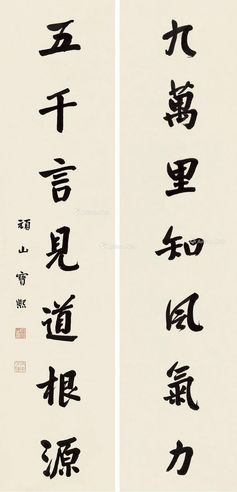 九萬里知風氣力
五千言見道根源
頑山寶熙